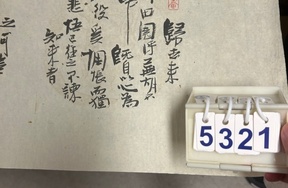 歸去來
田園將蕪胡
既自以心為
役奚惆悵而獨
悲悟已往之不諫
知來者
之可
5321